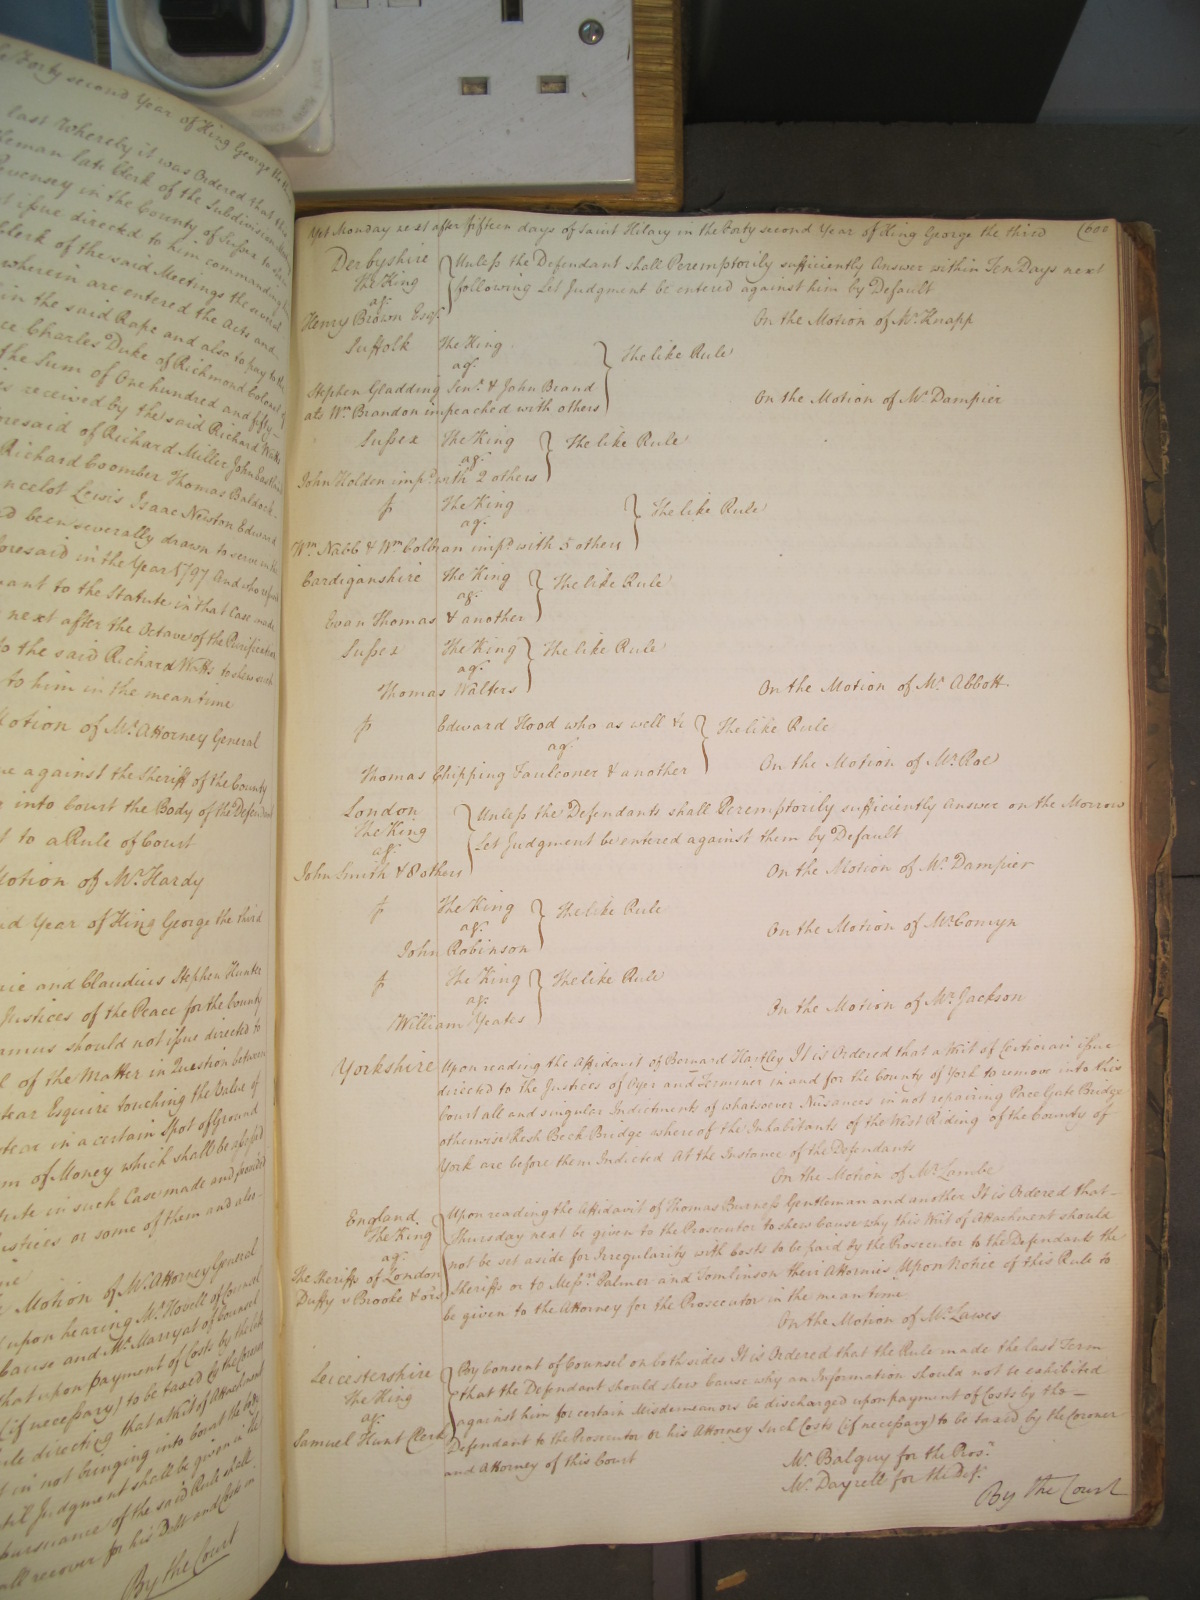 Forty second Year of King George the
last Whereby it was Ordered that the
late Clerk of the Subdivision
Pevensey in the County of Sussex to
issue directed to him commanding
Clerk of the said Meetings the several
wherein are entered the Acts and
in the said Rape and also to pay to the
Charles Duke of Richmond Colonel of
the Sum of One hundred and fifty
received by the said Richard Watts
aforesaid of Richard Miller John
Richard Coomber Thomas Baldock
Lewis Isaac Newton Edward
been severally drawn to serve in the
aforesaid in the Year 1797 And who
to the Statute in that Case made
next after the Octave of the Purification
to the said Richard Watts to shew such
to him in the mean time
Motion of Mr. Attorney General
against the Sheriff of the County
into Court the Body of the Defendant
to a Rule of Court
Motion of Mr. Hardy
Year of King George the third
and Claudius Stephen Hunter
Justices of the Peace for the County
should not issue directed to
of the Matter in Question between
Esquire touching the Value of
in a certain Spot of Ground
of Money which shall be assessed
in such Case made and provided
Justices or some of them and
Motion of Mr. Attorney General
upon hearing Mr. Hovell of Counsel
Cause and Mr. Marryat of Counsel
that upon payment of Costs by the
(if necessary) to be taxed by the Coroner
directing that a Writ of Attachment
in not bringing into Court the body
Judgment shall be given in the
pursuance of the said Rule shall
recover for his Debt and Costs in
By the Court
Yet Monday next after fifteen days of Saint Hilary in the Forty second Year of King George the third
Derbyshire
The King
agt.
Henry Brown Esqr.
Unless the Defendant shall Peremptorily sufficiently Answer within Ten Days next
following Let Judgment be entered against him by Default
On the Motion of Mr. Knapp
Suffolk The King
agt.
Stephen Gladding Senr. & John Brand
als Wm. Brandon impeached with others
The like Rule
On the Motion of Mr. Dampier
Sussex The King
agt.
John Holden impd. with 2 others
The like Rule
The King
agt.
Wm. Nabb & Wm. Colbran impd. with 5 others
The like Rule
Cardiganshire The King
agt.
Evan Thomas & another
The like Rule
Sussex The King
agt.
Thomas Walters
The like Rule
On the Motion of Mr. Abbott
Edward Hood who as well &c
agt.
Thomas Chipping Faulconer & another
The like Rule
On the Motion of Mr. Roe
London
The King
agt.
John Smith & 8 others
Unless the Defendants shall Peremptorily sufficiently Answer on the Morrow
Let Judgment be entered against them by Default
On the Motion of Mr. Dampier
The King
agt.
John Robinson
The like Rule
On the Motion of Mr. Comyn
The King
agt.
William Yeates
The like Rule
On the Motion of Mr. Jackson
Yorkshire Upon reading the Affidavit of Bernard Hartley It is Ordered that a Writ of Certiorari issue
directed to the Justices of Oyer and Terminer in and for the County of York to remove into this
Court all and singular Indictments of whatsoever Nusances in not repairing Pace Gate Bridge
otherwise Kesh Beck Bridge whereof the Inhabitants of the West Riding of the County of
York are before them Indicted At the Instance of the Defendants
On the Motion of Mr. Lambe
England
The King
agt.
The Sheriffs of London
Duffy v Brooke & ors.
Upon reading the Affidavit of Thomas Burness Gentleman and another It is Ordered that
Thursday next be given to the Prosecutor to shew Cause why this Writ of Attachment should
not be set aside for Irregularity with Costs to be paid by the Prosecutor to the Defendants the
Sheriffs or to Messrs. Palmer and Tomlinson their Attornies Upon Notice of this Rule to
be given to the Attorney for the Prosecutor in the mean time
On the Motion of Mr. Lawes
Leicestershire
The King
agt.
Samuel Hunt Clerk
By Consent of Counsel on both sides It is Ordered that the Rule made the last Term
that the Defendant should shew Cause why an Information should not be exhibited
against him for certain Misdemeanors be discharged upon payment of Costs by the
Defendant to the Prosecutor or his Attorney Such Costs (if necessary) to be taxed by the Coroner
and Attorney of this Court
Mr. Balguy for the Prosr.
Mr. Dayrell for the Deft.
By the Court